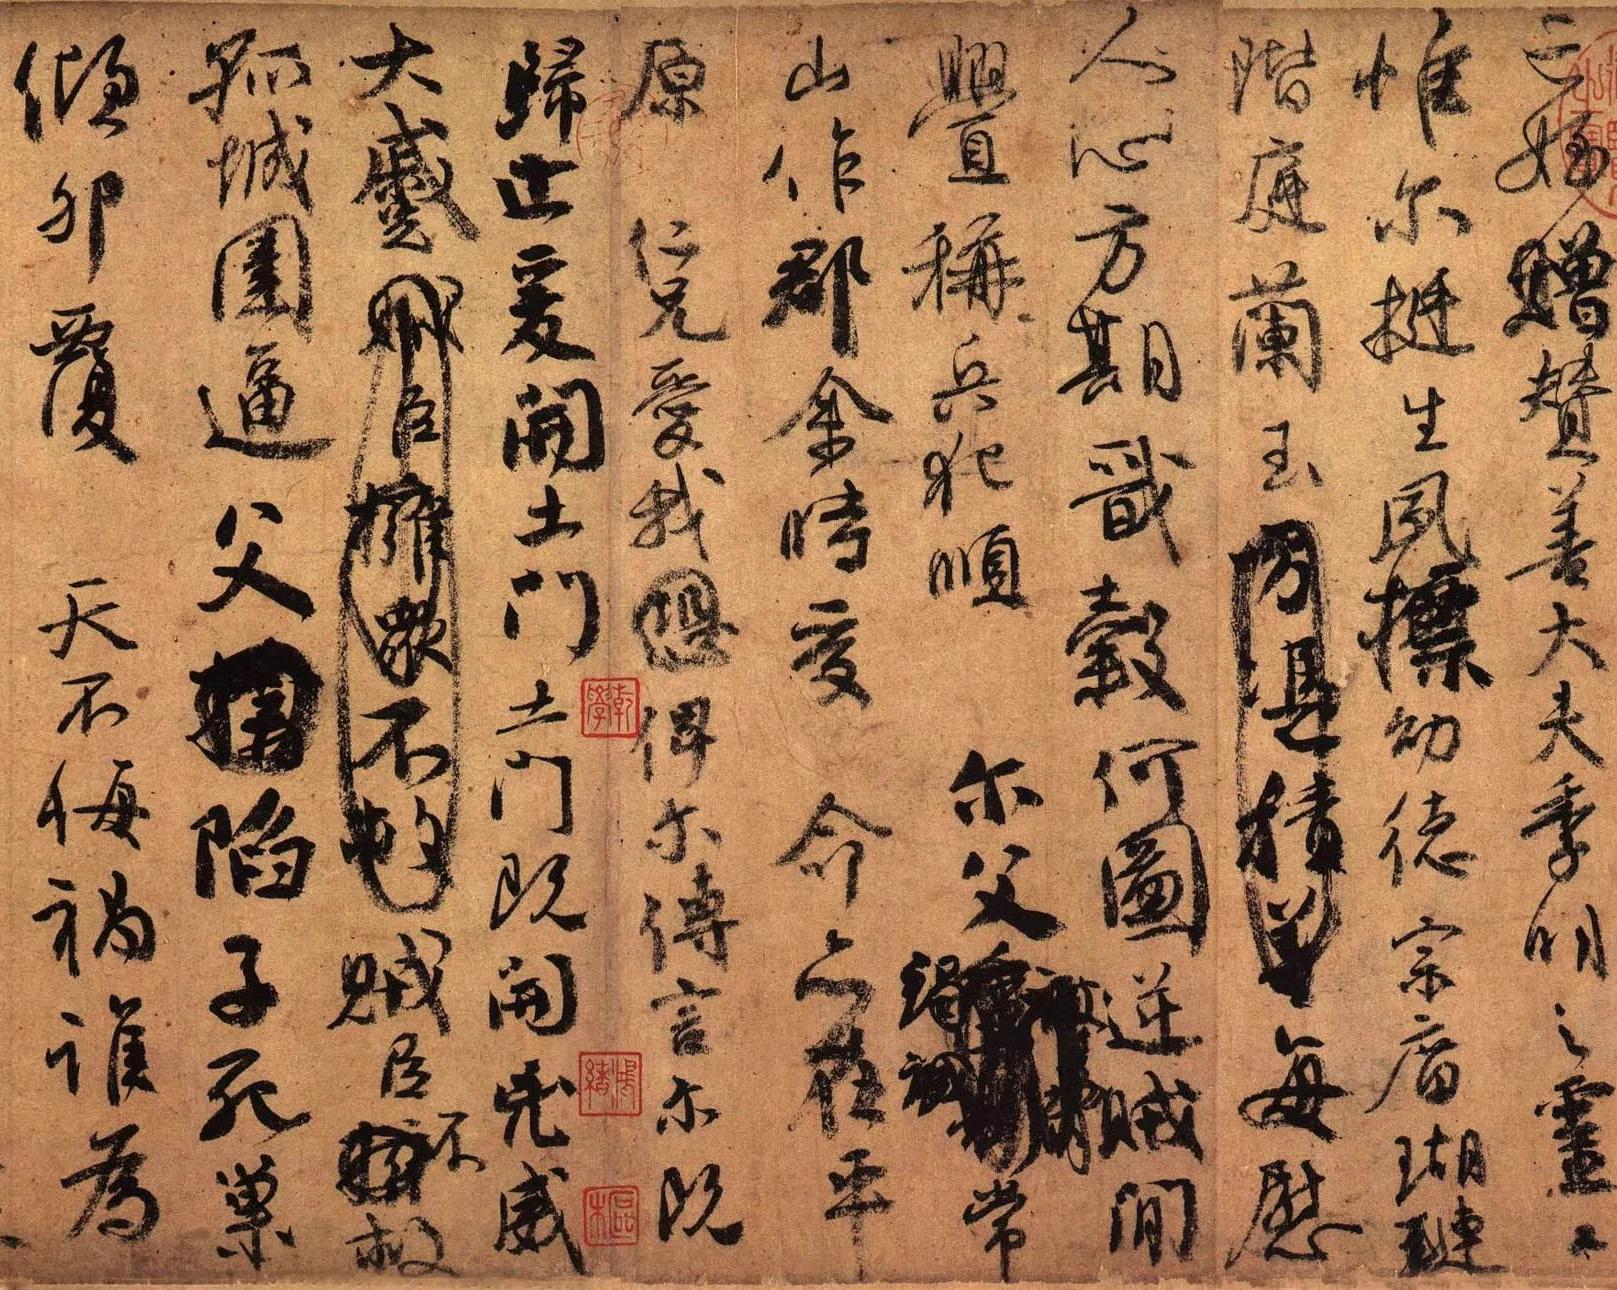 亡姪贈贊善大夫季明之靈
惟爾挺生夙標幼德宗廟瑚璉
階庭蘭玉方憑積善每慰
人心方期戩穀何圖逆賊閒
舋稱兵犯順爾父常
山作郡余時受命亦在平
原仁兄愛我恐俾爾傳言爾既
歸止爰開土門土門既開凶威
大蹙賊臣擁眾不救賊臣不救
孤城圍逼父陷子死巢
傾卵覆天不悔禍誰為